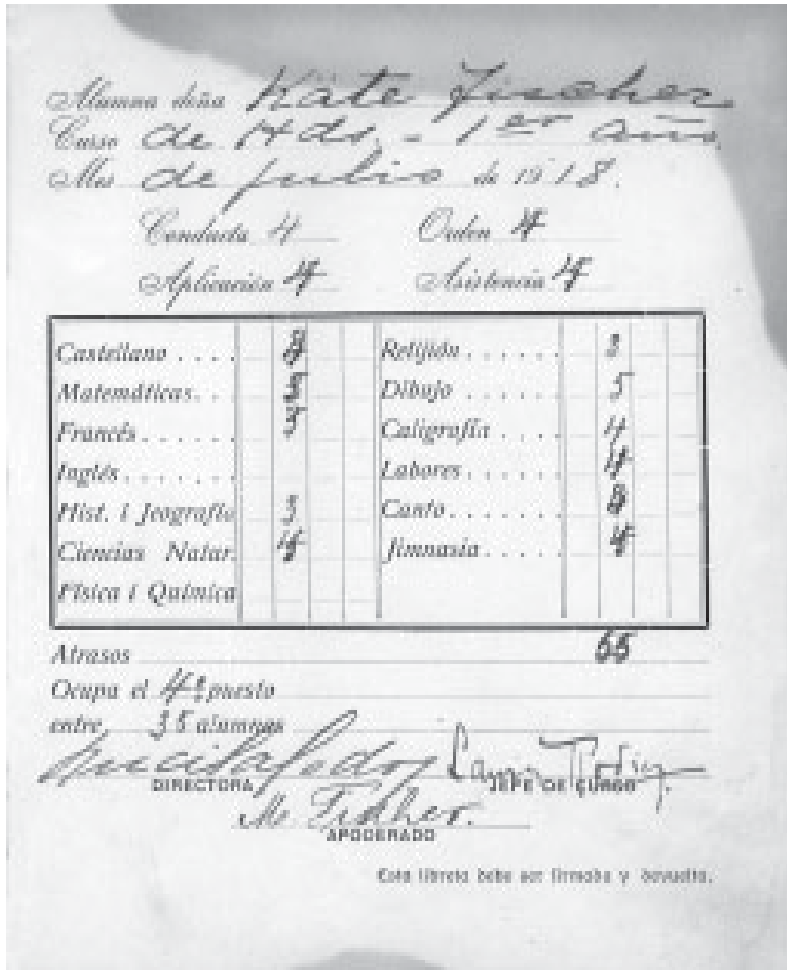 Alumna doña Käte Fischer
Curso de Hds. - 1er año
Mes de julio de 1918.
Conducta 4 Orden 4
Aplicación 4 Asistencia 4
Castellano . . . . Relijión . . . . . .
Matemáticas. . . Dibujo . . . . . .
Francés . . . . . . Caligrafía . . . . 4
Inglés . . . . . . . Labores . . . . . . 4
Hist. i Jeografía Canto. . . . . . .
Ciencias Natur. Jimnasia . . . . . 4
Física i Química
Atrasos 55
Ocupa el 4º puesto
entre 35 alumnas
DIRECTORA JEFE DE CURSO
M. Fischer.
APODERADO
Esta libreta debe ser firmada y devuelta.